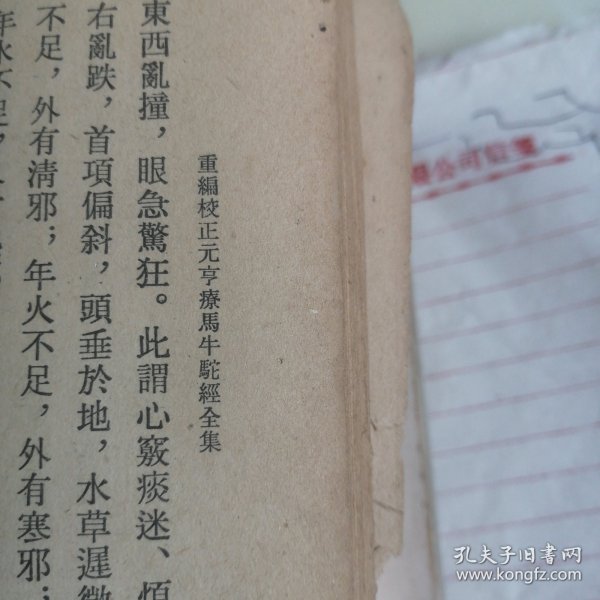 重編校正元亨療馬牛駝經全集
東西亂撞，眼急驚狂。此謂心竅痰迷、煩
右亂跌，首項偏斜，頭垂於地，水草遲
不足，外有清邪；年火不足，外有寒邪；
年水不足，
公司信箋
孔夫子旧书网
www.kongfz.com